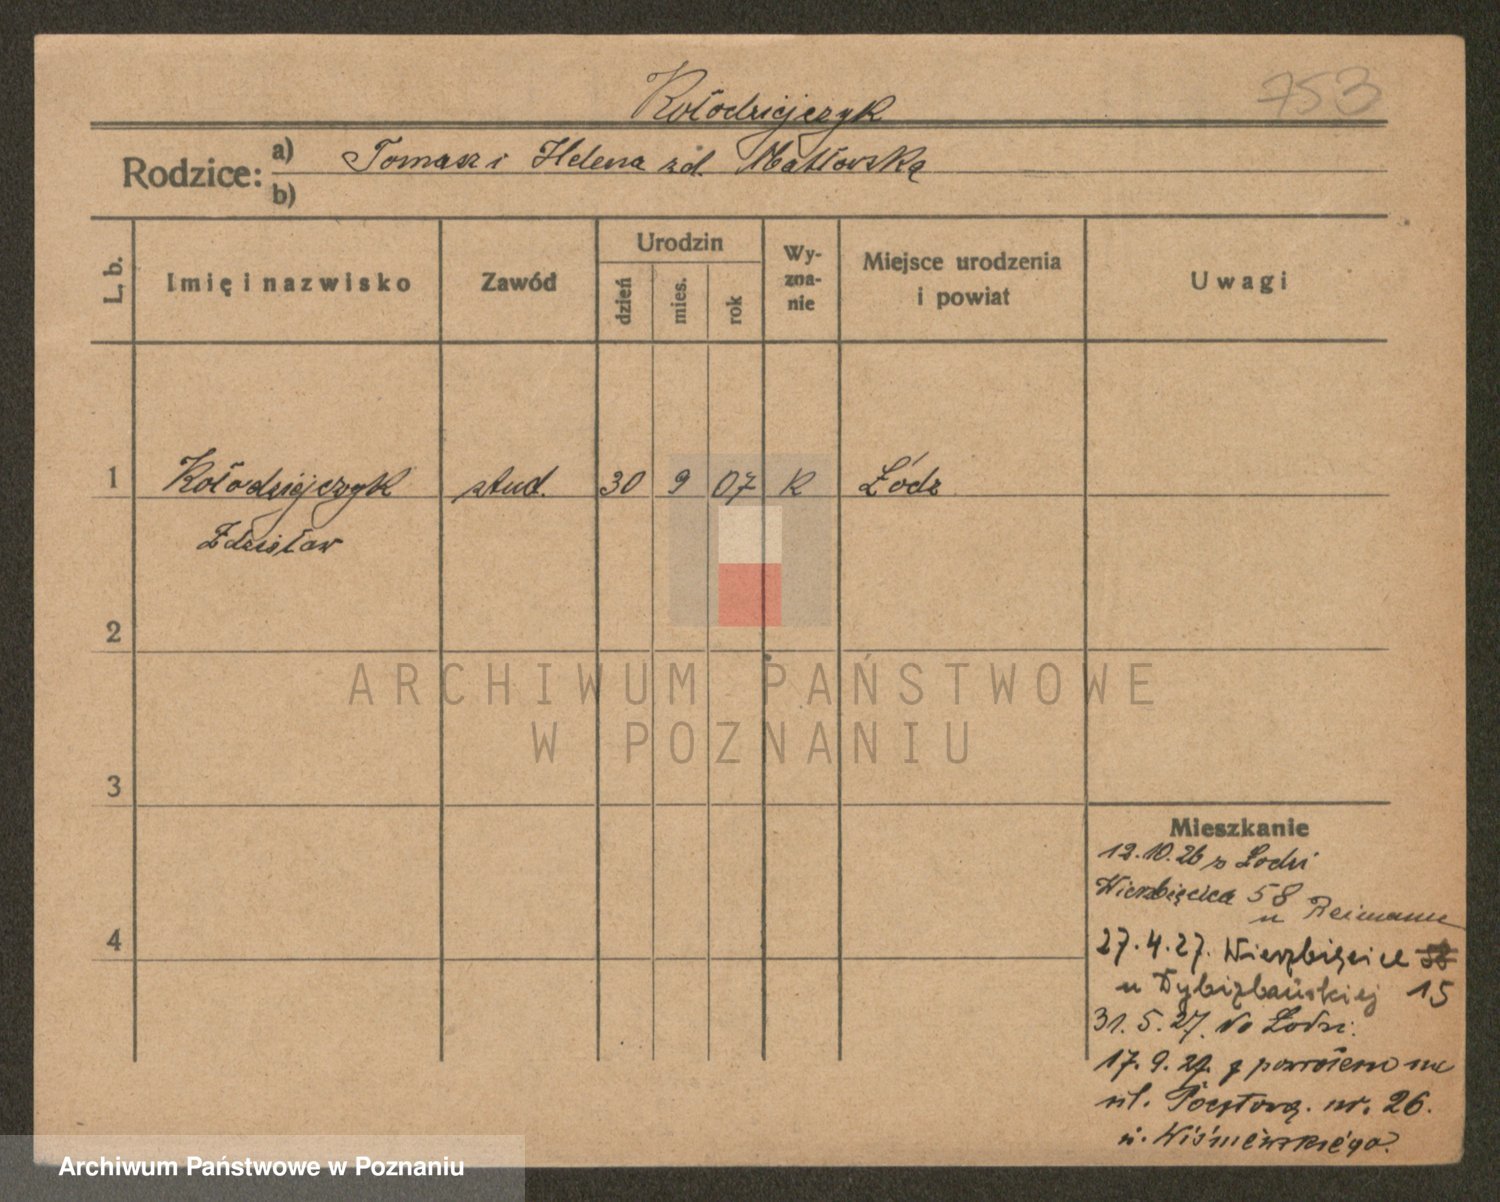 753
Kołodziejczyk
Rodzice: a) Tomasz i Helena zd.
b)
L. b.
Imię i nazwisko
Zawód
Urodzin
dzień
mies.
rok
Wy-
zna-
nie
Miejsce urodzenia
i powiat
Uwagi
1 Kołodziejczyk stud. 30 9 07 k Łódz
Zdzisław
2
3
4
Mieszkanie
12.10.26 z Lodzi
Wierzbięcice 58
u Reimann
27.4.27. Wierzbięcice
u 15
31.5.27. do Łodzi.
17.9.27. z powrotem na
ul. Pocztową. nr. 26.
u. Wiśniewskiego.
ARCHIWUM PAŃSTWOWE
W POZNANIU
Archiwum Państwowe w Poznaniu